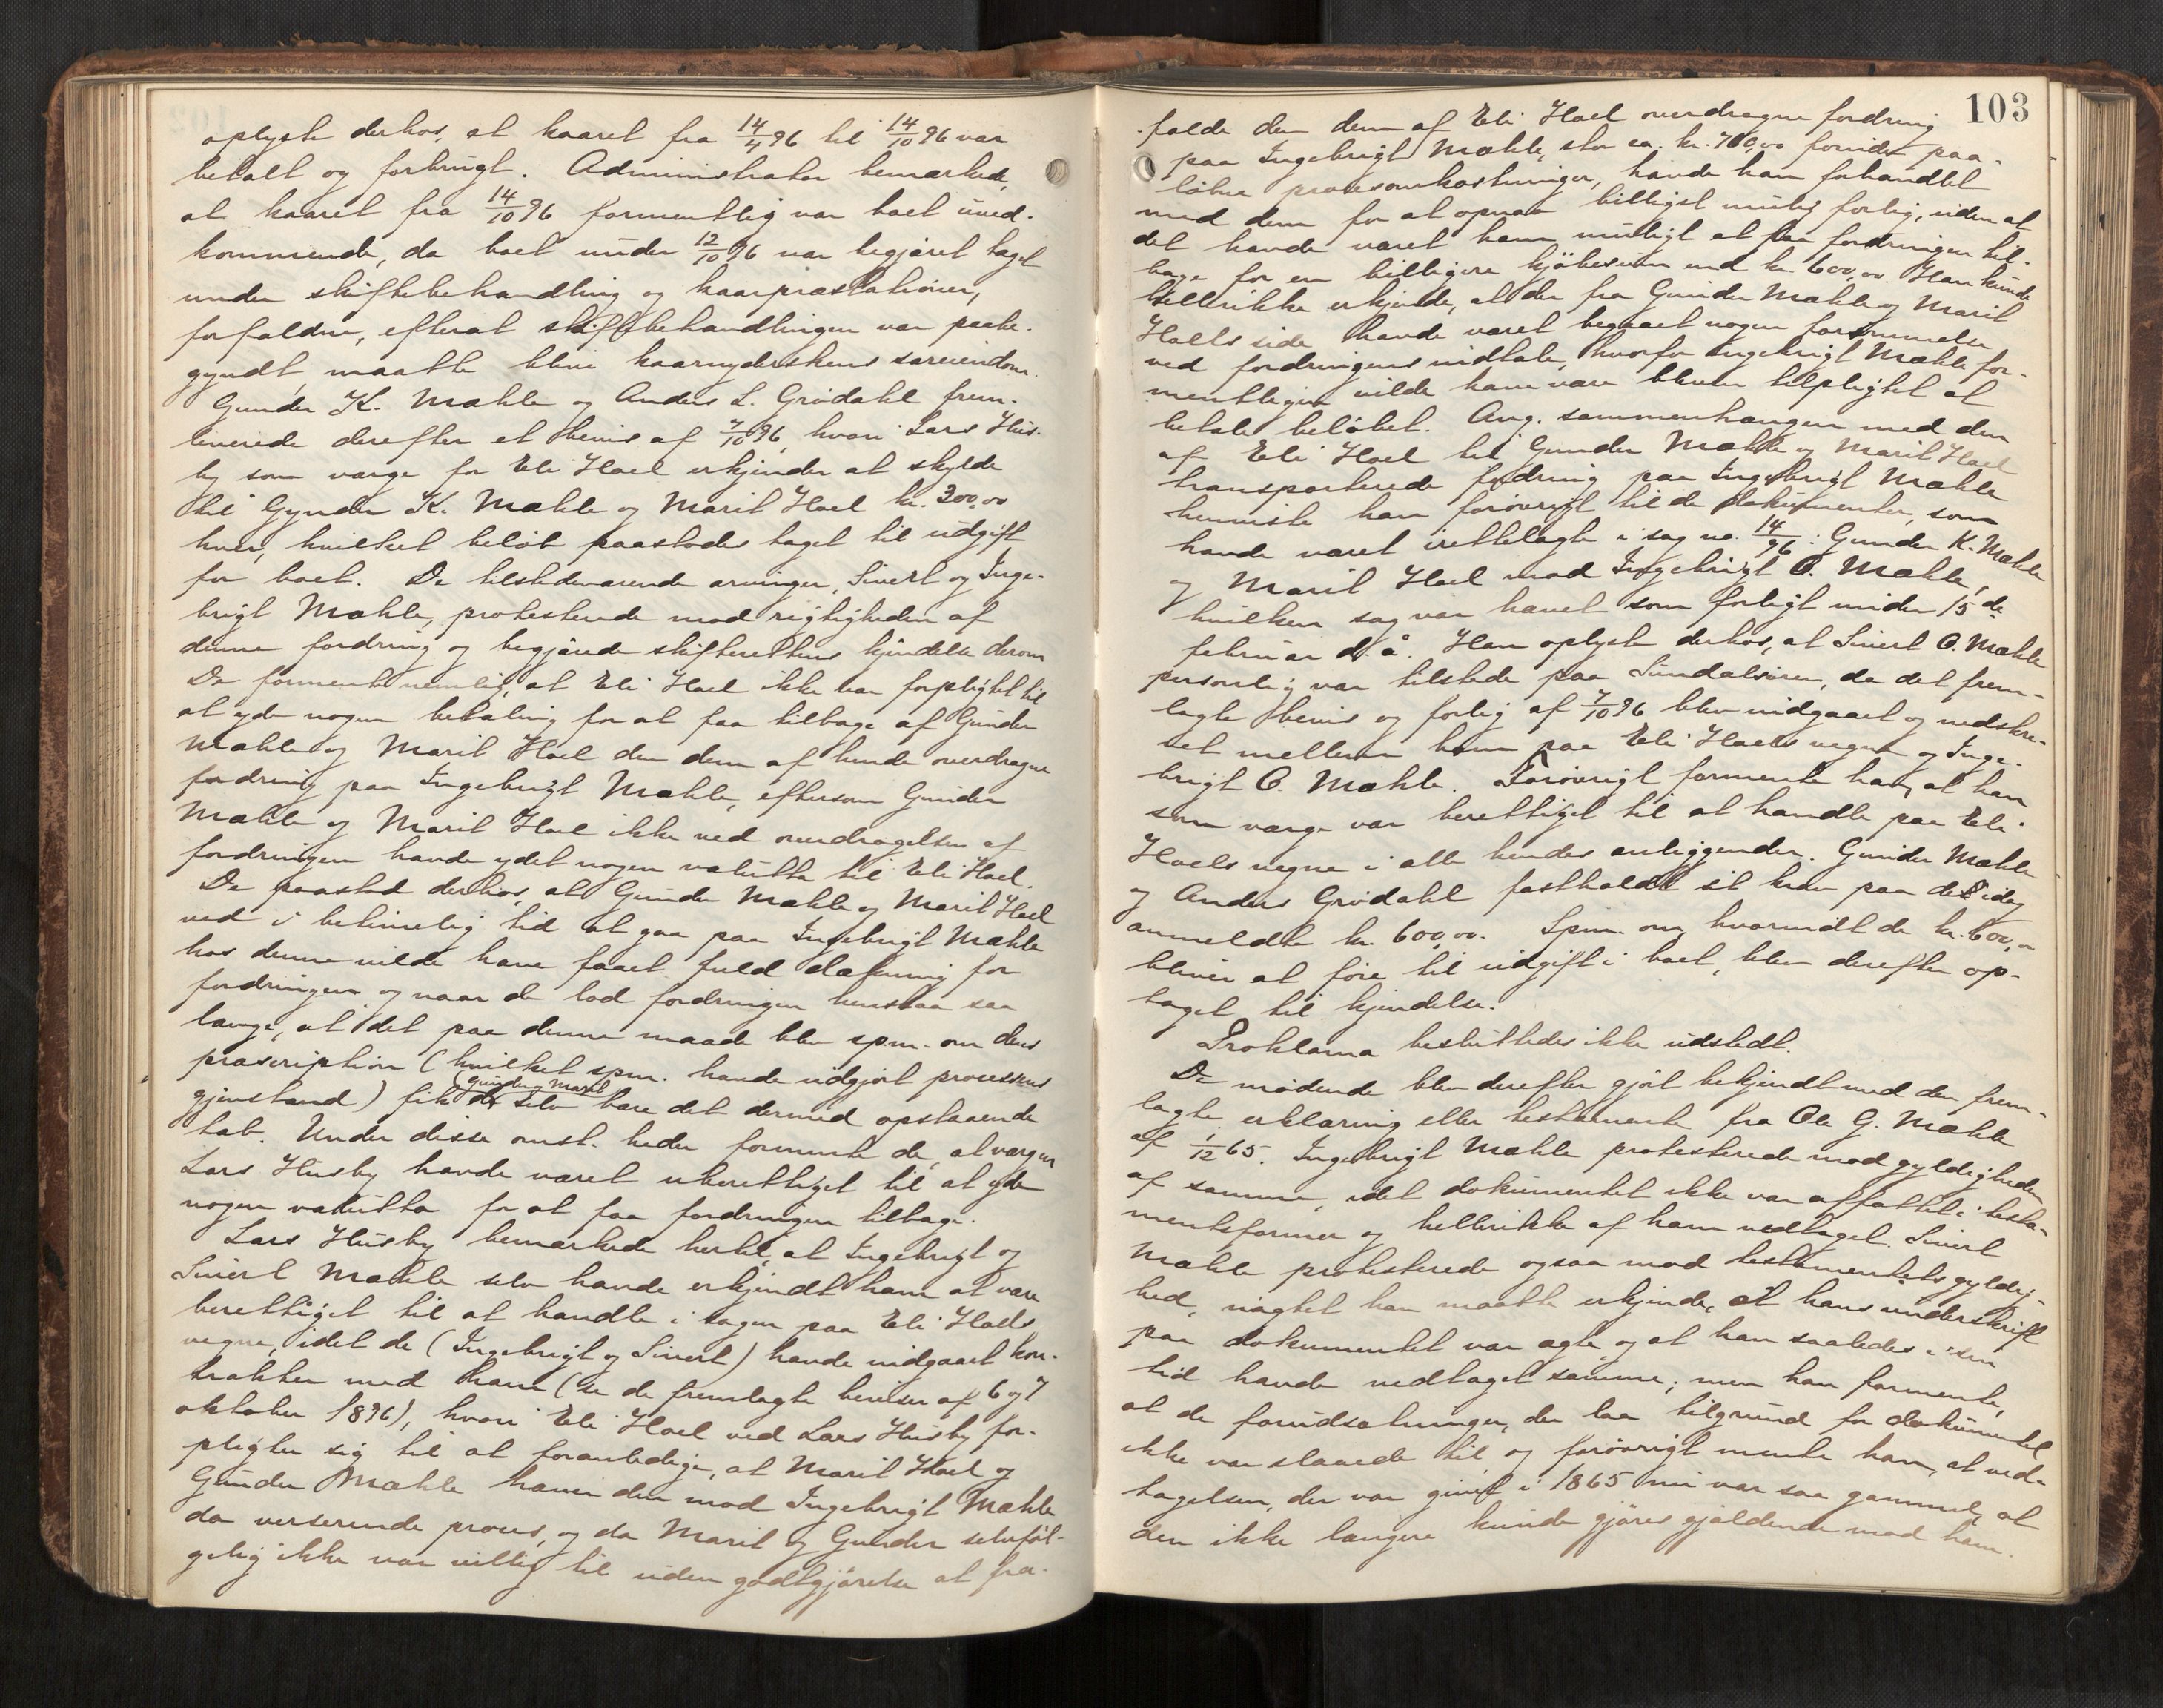 oplyste derhos, at kaaret fra 14/4 96 til 14/10 96 var
betalt og forbrugt. Administrator bemærkede,
at kaaret fra 14/10 96 formentlig var boet uved-
kommende, da boet under 12/10 96 var begjæret taget
under skiftebehandling og kaarpræstationer,
forfaldne, efterat skiftebehandlingen var paabe-
gyndt, maatte blive kaarnyderskens særeiendom.
Gunder K. Mæhle og Anders L. Grødahl frem-
leverede derefter et bevis af 7/10 96, hvori Lars Hus-
by som værge for Eli Hoel erkjender at skylde
til Gunder K. Mæhle og Marit Hoel kr. 300,00
hver, hvilket beløb paastodes taget til udgift
for boet. De tilstedeværende arvinger, Sivert og Inge-
brigt Mæhle, protesterede mod rigtigheden af
denne fordring og begjærede skifterettens kjendelse derom
De formente nemlig, at Eli Hoel ikke var forpligtet til
at yde nogen betaling for at faa tilbage af Gunder
Mæhle og Marit Hoel den dem af hende overdragne
fordring paa Ingebrigt Mæhle, eftersom Gunder
Mæhle og Marit Hoel ikke ved overdragelsen af
fordringen havde ydet nogen valutta til Eli Hoel.
De paastod derhos, at Gunder Mæhle og Marit Hoel
ved i betimelig tid at gaa paa Ingebrigt Mæhle
hos denne vilde have faaet fuld dækning for
fordringen og naar de lod fordringen henstaa saa
længe, at det paa denne maade blev spm. om dens
præscription (hvilket spm. havde udgjort processens
gjenstand) fik de (Gunder og Marit) selv bære det dermed opstaaende
tab. Under disse omst.heder formente de, at værgen
Lars Husby havde været uberettiget til at yde
nogen valutta for at faa fordringen tilbage.
Lars Husby bemærkede hertil, at Ingebrigt og
Sivert Mæhle selv havde erkjendt ham at være
berettiget til at handle i sagen paa Eli Hoels
vegne, idet de (Ingebrigt og Sivert) havde indgaaet kon-
trakter med ham (se de fremlagte beviser af 6 og 7
oktober 1896), hvori Eli Hoel ved Lars Husby for-
pligter sig til at foranledige, at Marit Hoel og
Gunder Mæhle hæver den mod Ingebrigt Mæhle
da verserende proces, og da Marit og Gunder selvføl-
gelig ikke var villig til uden godtgjørelse at fra-
103
falde den dem af Eli Hoel overdragne fordring
paa Ingebrigt Mæhle, stor ca. kr. 700,00 foruden paa-
løbne procesomkostninger, havde han forhandlet
med dem for at opnaa billigst mulig forlig, uden at
det havde været ham muligt at faa fordringen til-
bage for en billigere kjøbesum end kr. 600,00. Han kunde
hellerikke erkjende, at der fra Gunder Mæhle og Marit
Hoels side havde været begaaet nogen forsømmelse
ved fordringens indtale, hvorfor Ingebrigt Mæhle for-
mentligen vilde have være bleven tilpligtet at
betale beløbet. Ang. sammenhængen med den
af Eli Hoel til Gunder Mæhle og Marit Hoel
transporterede fordring paa Ingebrigt Mæhle
henviste han forøvrigt til de dokumenter, som
havde været irettelagte i sag no. 14/96: Gunder K. Mæhle
og Marit Hoel mod Ingebrigt O. Mæhle,
hvilken sag var hævet som forligt under 15de
februar d. å. Han oplyste derhos, at Sivert O. Mæhle
personlig var tilstede paa Sundalsøren, da det frem-
lagte bevis og forlig af 7/10 96 blev indgaaet og nedskre-
vet mellem ham paa Eli Hoels vegne og Inge-
brigt O. Mæhle. Forøvrigt formente han, at han
som værge var berettiget til at handle paa Eli
Hoels vegne i alle hendes anliggender. Gunder Mæhle
og Anders Grødahl fastholdt sit krav paa de idag
anmeldte kr. 600,00. Spm. om, hvorvidt de kr. 600,00
bliver at føre til udgift i boet, blev derefter op-
taget til kjendelse.
Proklama besluttedes ikke udstedt.
De mødende blev derefter gjort bekjendt med den frem-
lagte erklæring eller testamente fra Ole G. Mæhle
af 1/12 65. Ingebrigt Mæhle protesterede mod gyldigheden
af samme, idet dokumentet ikke var affattet i testa-
mentsformer og hellerikke af ham vedtaget. Sivert
Mæhle protesterede ogsaa mod testamentets gyldig-
hed, uagtet han maatte erkjende, at hans underskrift
paa dokumentet var ægte, og at han saaledes i sin
tid havde vedtaget samme; men han formente,
at de forudsætninger, der laa tilgrund for dokumentet
ikke var slaaede til, og forøvrigt mente han, at ved-
tagelsen, der var givet i 1865 nu var saa gammel, at
den ikke længere kunde gjøres gjældende mod ham.